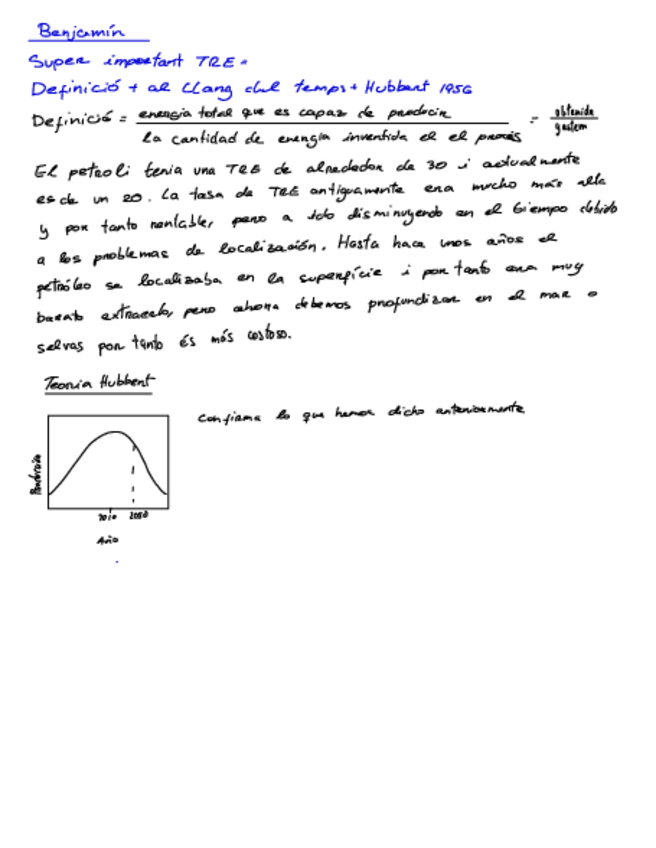 Benjamín
Super important TRE =
Definició + al llarg del temps + Hubbert 1956
Definició = energia total que es capaz de producir = obtenida
la cantidad de energia invertida el el procés gastem
El petroli tenia una TRE de alrededor de 30 i actualmente
es de un 20. La tasa de TRE antiguamente era mucho más alta
y por tanto rentable, pero a ido disminuyendo en el tiempo debido
a los problemas de localización. Hasta hace unos años el
petróleo se localizaba en la superfície i por tanto era muy
barato extraerlo, pero ahora debemos profundizar en el mar o
selvas por tanto és más costoso.
Teoria Hubbert
Confirma lo que hemos dicho anteriormente
Producción
2010 2050
Año